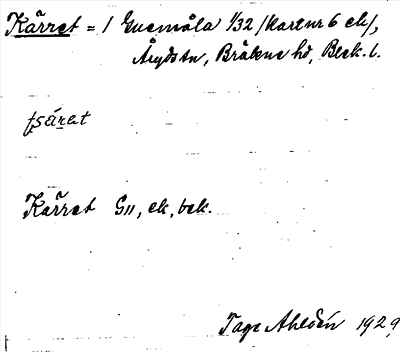 Kärret = 1 Guemåla 1/32 /kartnr 6 ek/,
Åryds sn, Bräkne hd, Blek. l.
Kärret G11, ek, bek.
Tage Ahldén 1929